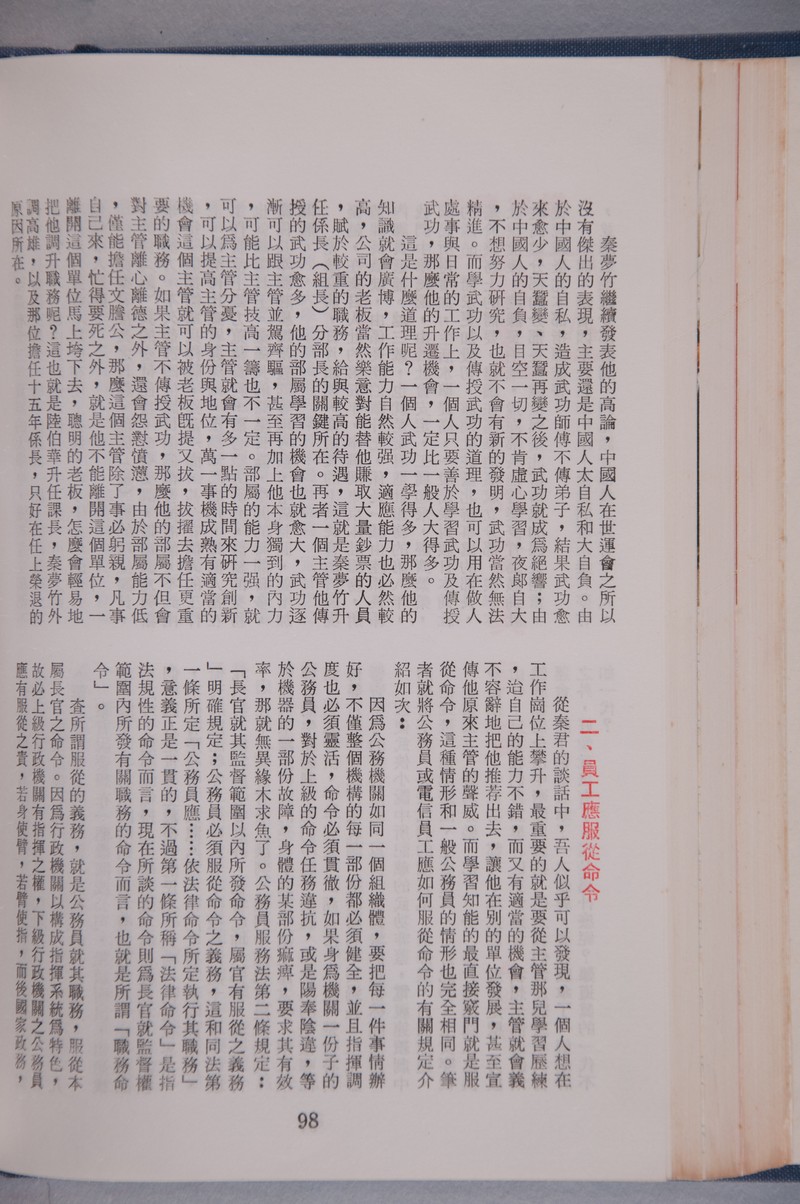 秦夢竹繼續發表他的高論，中國人在世運會之所以
沒有傑出的表現，主要還是中國人太自私和太自負。由
於中國人的自私，造成武功師傅不傳弟子，結果武功愈
來愈少，天蠶變、天蠶再變之後，武功就成爲絕響；由
於中國人的自負，目空一切，不肯虛心學習，夜郎自大
，不想努力研究，也就不會有新的發明，武功當然無法
精進。而學武功以及傳授武功的道理，也可以用在做人
處事與日常的工作上，一個人只要善於學習武功及傳授
武功，那麼他的升遷機會，一定比一般人大得多。
這是什麼道理呢？一個人武功一學得多，那麼他的
知識就會廣博，工作能力自然較强，適應能力也必然較
高，公司的老板當然樂意對能替他賺取大量鈔票的人員
，賦於較重的職務，給與較高的待遇，這就是秦夢竹升
任係長（組長）分部長的關鍵所在。再者一個主管他傳
授的武功愈多，他的部屬學習的機會也就愈大，武功逐
漸可以跟主管並駕齊驅，甚至再加上他本身獨到的內力
，可能比主管技高一籌也不一定。部屬的能力一强，就
可以爲主管分憂，主管就會有多一點的時間來研究創新
，可以提高主管的身份與地位，萬一事機成熟有適當的
機會這個主管就可以被老板旣提又拔，拔擢去擔任更重
要的職務。如果主管不傳授武功，那麼他的部屬不但會
對主管離心離德之外，還會怨懟憤懣，由於部屬能力低
，僅能擔任文膽公，那麼這個主管除了事必躬親，凡事
自己來，忙得要死之外，就是他不能離開這個單位，一
離開這個單位馬上垮下去，聰明的老板，怎麼會輕易地
把他調升職務呢？這也就是陸伯華升任課長，秦夢竹外
調高雄，以及那位擔任十五年係長，只好在任上榮退的
原因所在。
二、員工應服從命令
從秦君的談話中，吾人似乎可以發現，一個人想在
工作崗位上攀升，最重要的就是要從主管那兒學習歷練
，迨自己的能力不錯，而又有適當的機會，主管就會義
不容辭地把他推荐出去，讓他在別的單位發展，甚至宣
傳他原來主管的聲威。而學習知能的最直接竅門就是服
從命令，這種情形和一般公務員的情形也完全相同。筆
者就將公務員或電信員工應如何服從命令的有關規定介
紹如次：
因爲公務機關如同一個組織體，要把每一件事情辦
好，不僅整個機構的每一部份都必須健全，並且指揮調
度也必須靈活，命令必須貫徹，如果身爲機關一份子的
公務員，對於上級的命令任務違抗，或是陽奉陰違，等
於機器的一部份故障，身體的某部份痲痺，要求其有效
率，那就無異緣木求魚了。公務員服務法第二條規定：
「長官就其監督範圍以內所發命令，屬官有服從之義務
」明確規定；公務員必須服從命令之義務，這和同法第
一條所定「公務員應……依法律命令所定執行其職務」
，意義正是一貫的，不過第一條所稱「法律命令」是指
法規性的命令而言，現在所談的命令則爲長官就監督權
範圍內所發有關職務的命令而言，也就是所謂「職務命
令」。
查所謂服從的義務，就是公務員就其職務，服從本
屬長官之命令。因爲行政機關以構成指揮系統爲特色，
故必上級行政機關有指揮之權，下級行政機關之公務員
應有服從之責，若身使臂，若臂使指，而後國家政務，
98